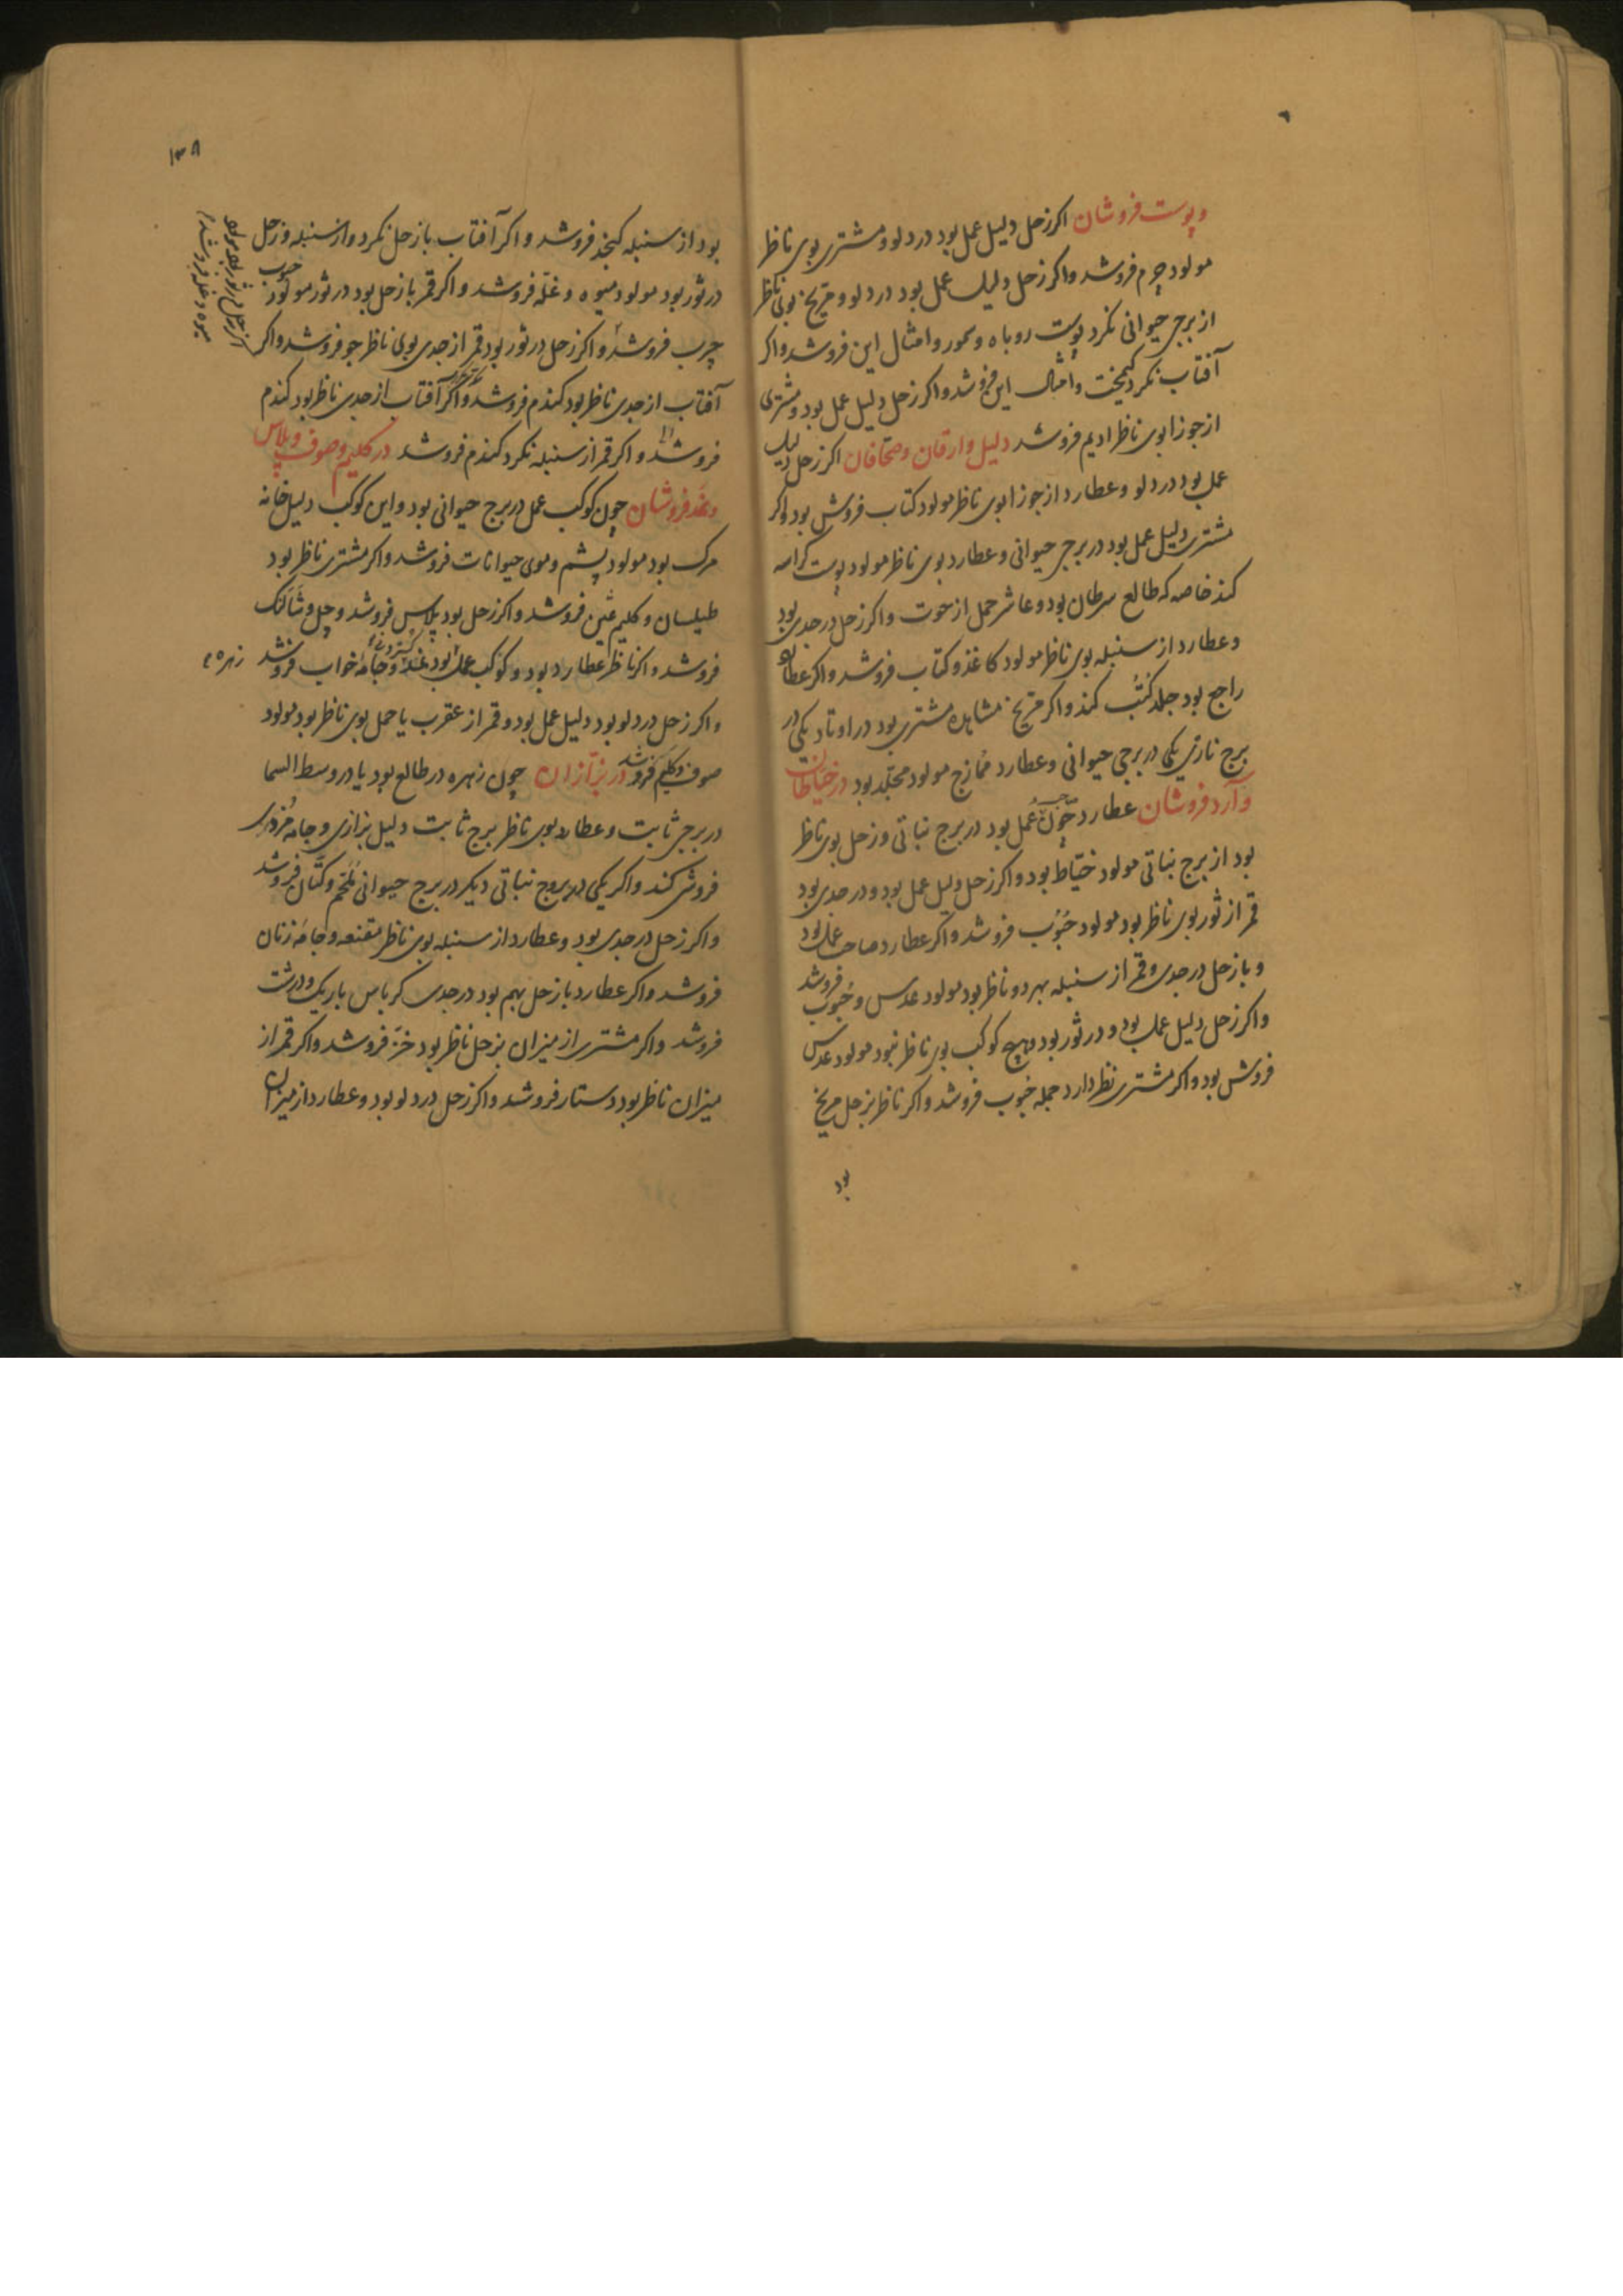 و پوست فروشان اکر زحل دلیل عمل بود در دلو و مشتری بوی ناظر
مولود چرم فروشد و اکر زحل دلیل عمل بود در دلو و مریخ بوی ناظر
از برجی حیوانی نکرد پوست روباه و سمور و امثال این فروشد و اکر
آفتاب نکرد کیمخت و امثال این فروشد و اکر زحل دلیل عمل بود و مشتری
از جوزا بوی ناظر ادیم فروشد دلیل وراقان و صحافان اکر زحل دلیل
عمل بود در دلو و عطارد از جوزا بوی ناظر مولود کتاب فروش بود و اکر
مشتری دلیل عمل بود در برجی حیوانی و عطارد بوی ناظر مولود پوست کراسه
کند خاصه که طالع سرطان بود و عاشر حمل از حوت و اکر زحل در جدی بود
و عطارد از سنبله بوی ناظر مولود کاغذ و کتاب فروشد و اکر عطارد
راجع بود جلد کتب کند و اکر مریخ مشاهده مشتری بود در اوتاد یکی در
برج ناری یکی در برجی حیوانی و عطارد ممازج مولود مجلد بود در خیاطان
و آرد فروشان عطارد چون عمل بود در برج نباتی و زحل بوی ناظر
بود از برج نباتی مولود خیاط بود و اکر زحل دلیل عمل بود و در جدی بود
قمر از ثور بوی ناظر بود مولود حبوب فروشد و اکر عطارد صاحب عمل بود
و با زحل در جدی و قمر از سنبله بهر دو ناظر بود مولود عدس و حبوب فروشد
و اکر زحل دلیل عمل بود و در ثور بود و هیچ کوکب بوی ناظر نبود مولود عدس
فروش بود و اکر مشتری نظر دارد جمله حبوب فروشد و اکر ناظر بزحل مریخ
بود
۱۳۸
بود از سنبله کنجد فروشد و اکر آفتاب با زحل نکرد و از سنبله و زحل
در ثور بود مولود میوه و غله فروشد و اکر قمر با زحل بود در ثور مولود حبوب
چرب فروشد و اکر زحل در ثور بود قمر از جدی بوی ناظر جو فروشد و اکر
آفتاب از جدی ناظر بود کندم فروشد و اکر آفتاب از جدی ناظر بود کندم
فروشد و اکر قمر از سنبله نکرد کندم فروشد در کلیم و صوف و پلاس
و نمد فروشان چون کوکب عمل در برج حیوانی بود و این کوکب دلیل خانه
مرک بود مولود پشم و موی حیوانات فروشد و اکر مشتری ناظر بود
طیلسان و کلیم ثمین فروشد و اکر زحل بود پلاس فروشد و جل و شالنک
فروشد و اکر ناظر عطارد بود و کوکب عمل بود نمد و جامه خواب فروشد
زهره
و اکر زحل در دلو بود دلیل عمل بود و قمر از عقرب یا حمل بوی ناظر بود مولود
صوف و کلیم فروشد در بزازان چون زهره در طالع بود یا در وسط السما
در برجی ثابت و عطارد بوی ناظر برج ثابت دلیل بزازی و جامه
فروشی کند و اکر یکی در بروج نباتی دیکر در برج حیوانی ملحم و کتان فروشد
و اکر زحل در جدی بود و عطارد از سنبله بوی ناظر مقنعه و جامه زنان
فروشد و اکر عطارد با زحل بهم بود در جدی کرباس باریک و درشت
فروشد و اکر مشتری از میزان بزحل ناظر بود خز فروشد و اکر قمر از
میزان ناظر بود دستار فروشد و اکر زحل در دلو بود و عطارد از میزان